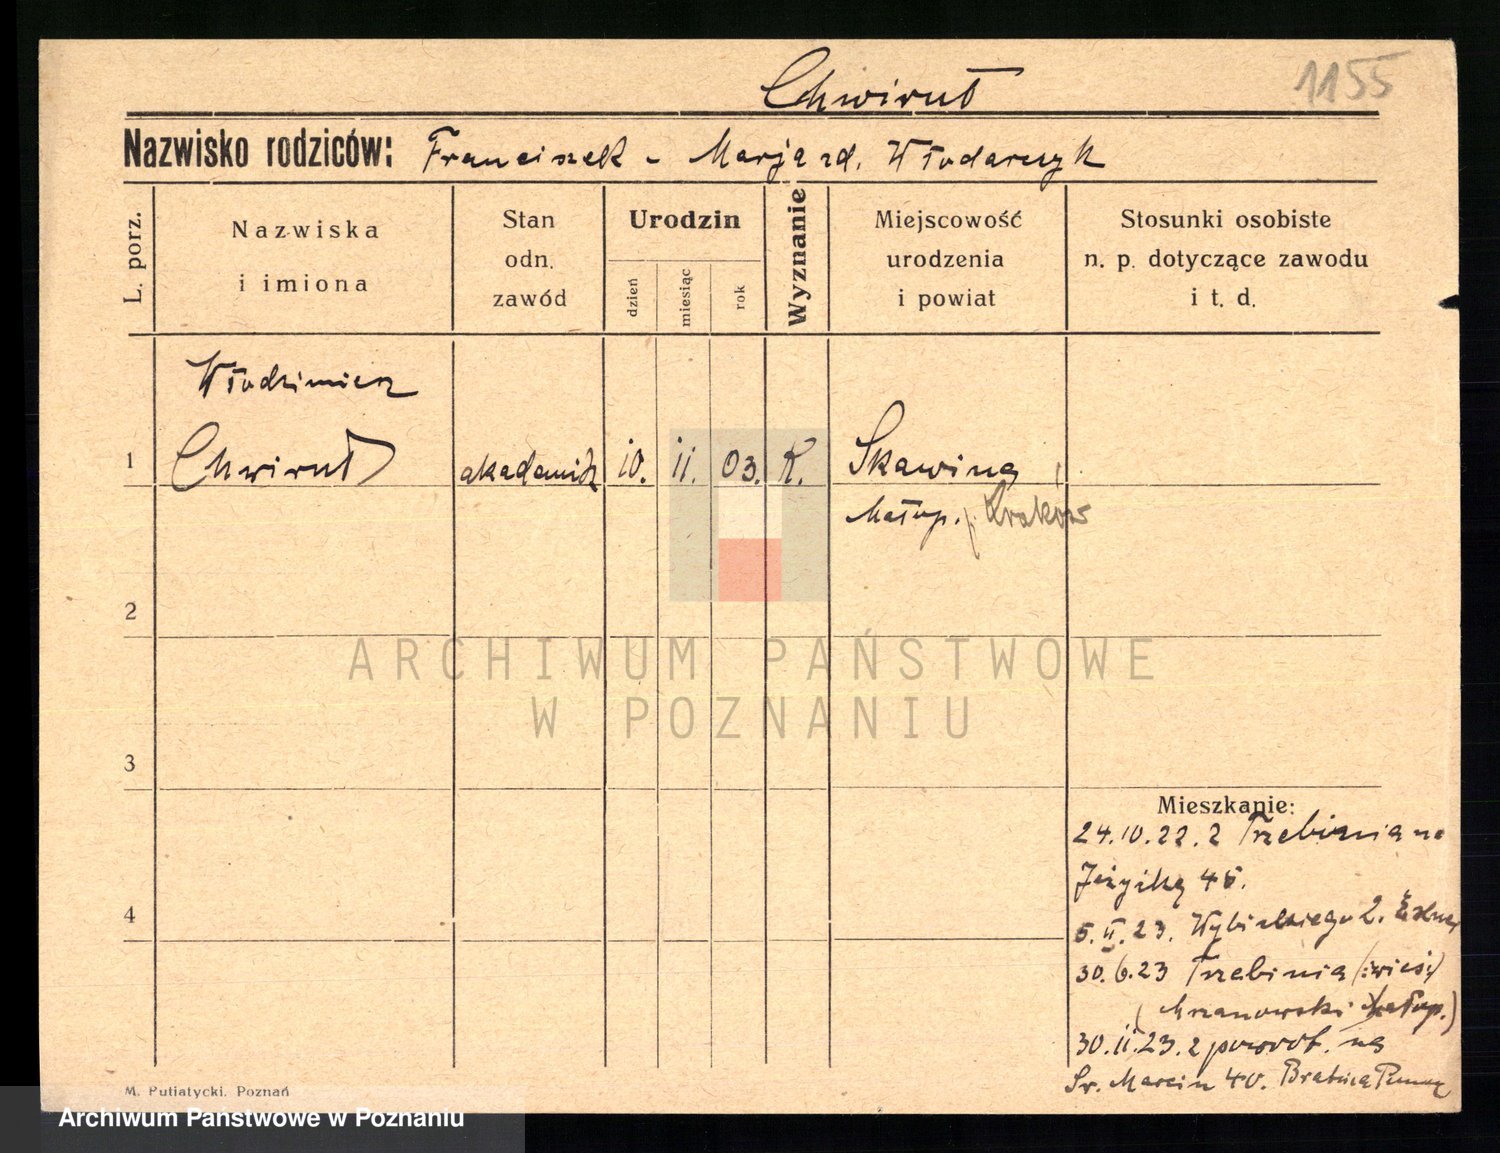 Chwirut
1155
Nazwisko rodziców: Franciszek - Marja zd. Włodarczyk
L. porz.
Nazwiska
i imiona
Stan
odn.
zawód
Urodzin
dzień
miesiąc
rok
Wyznanie
Miejscowość
urodzenia
i powiat
Stosunki osobiste
n. p. dotyczące zawodu
i t. d.
Włodzimierz
1 Chwirut akademik 10. 11. 03. K. Skawina
Małop. Kraków
2
3
4
Mieszkanie:
24.10.22. z Trzebinia na
Jeżycką 45.
5. II. 23. Wybickiego 2.
30.6.23 Trzebinia (:wieś:)
(Chrzanowski Małop.)
30.11.23. z powrot. na
Św. Marcin 40. Bratnia Pomoc
M. Putiatycki. Poznań
ARCHIWUM PAŃSTWOWE
W POZNANIU
Archiwum Państwowe w Poznaniu